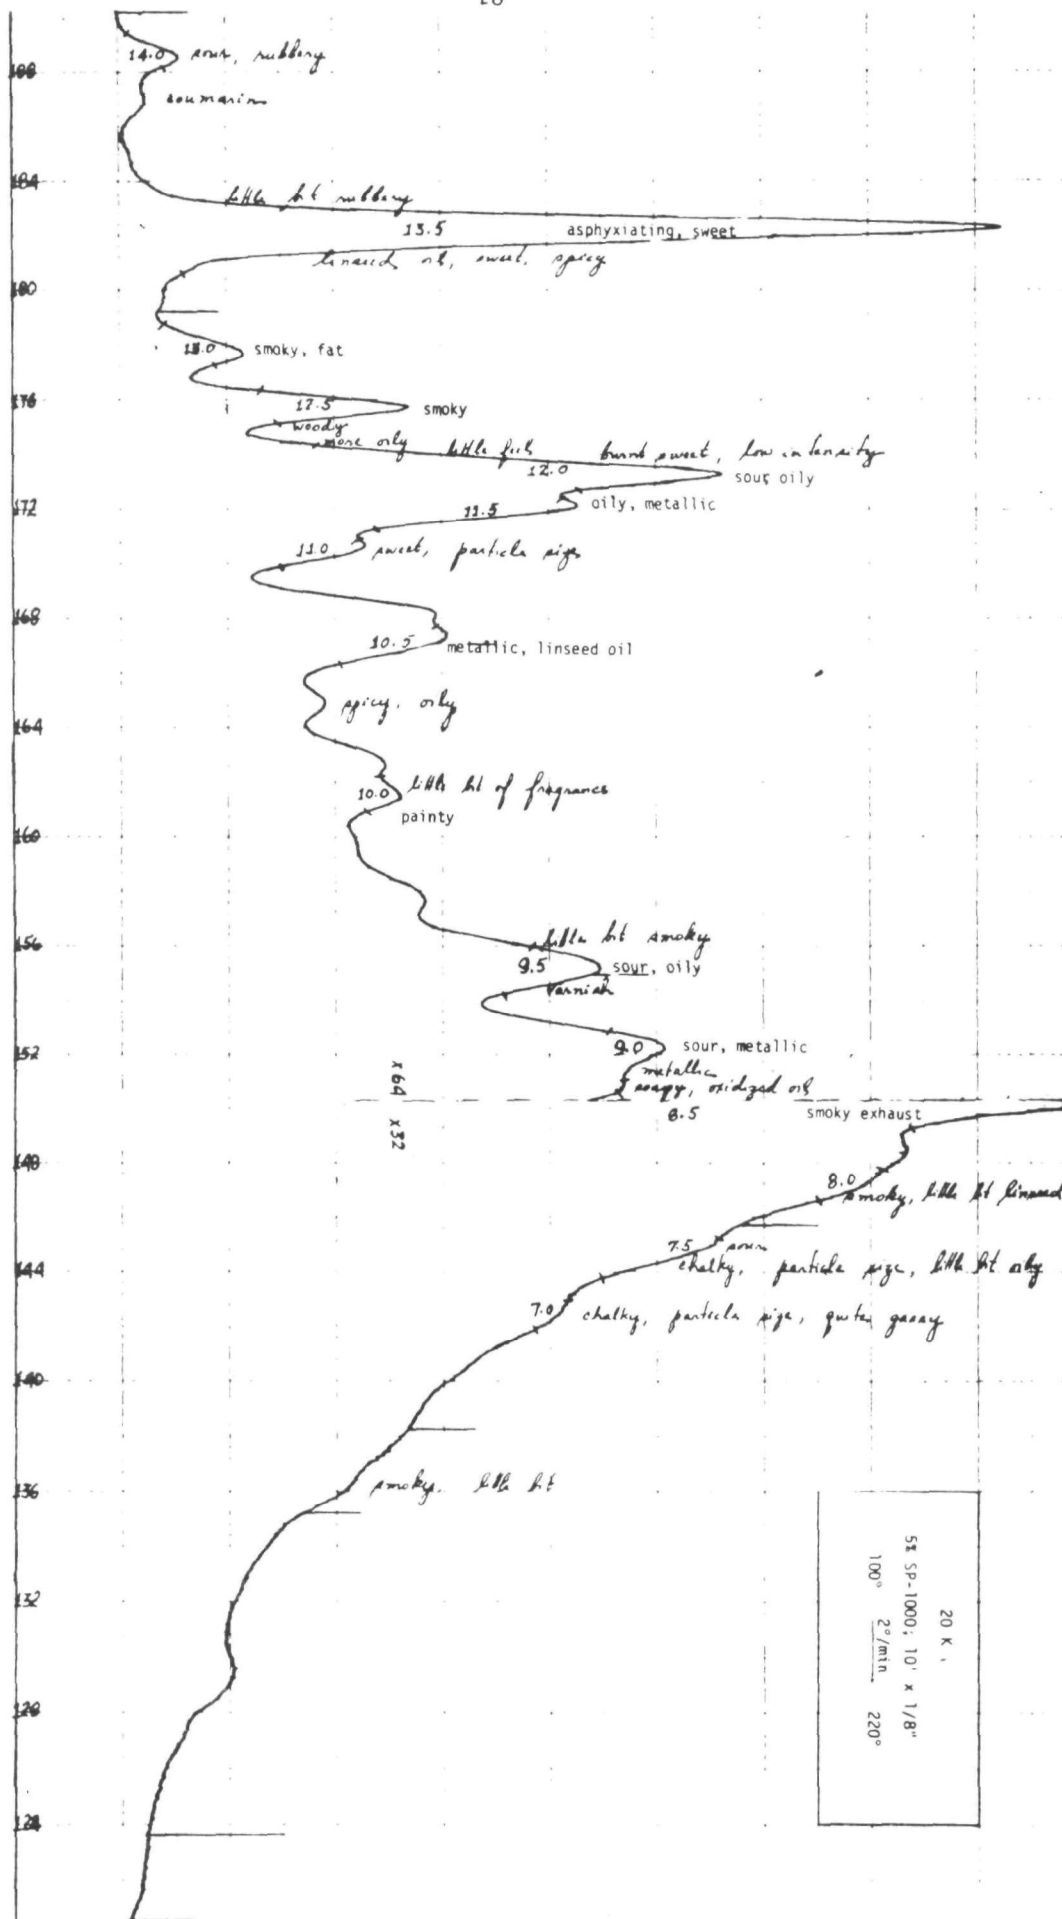 14.0 sour, rubbery
188
coumarin
184
little bit rubbery
13.5 asphyxiating, sweet
linseed oil, sweet, spicy
180
13.0 smoky, fat
176
12.5 smoky
woody
more oily little fish burnt sweet, low intensity
12.0 sour oily
oily, metallic
172
11.5
11.0 sweet, particle size
168
10.5 metallic, linseed oil
spicy, oily
164
10.0 little bit of fragrance
painty
160
156
little bit smoky
9.5 sour, oily
varnish
152
9.0 sour, metallic
metallic
soapy, oxidized oil
x64
8.5 smoky exhaust
x32
148
8.0
smoky, little bit linseed
7.5 sour
chalky, particle size, little bit oily
144
7.0 chalky, particle size, quite gassy
140
smoky, little bit
136
132
128
124
20 K
5% SP-1000; 10' x 1/8"
100° 2°/min 220°